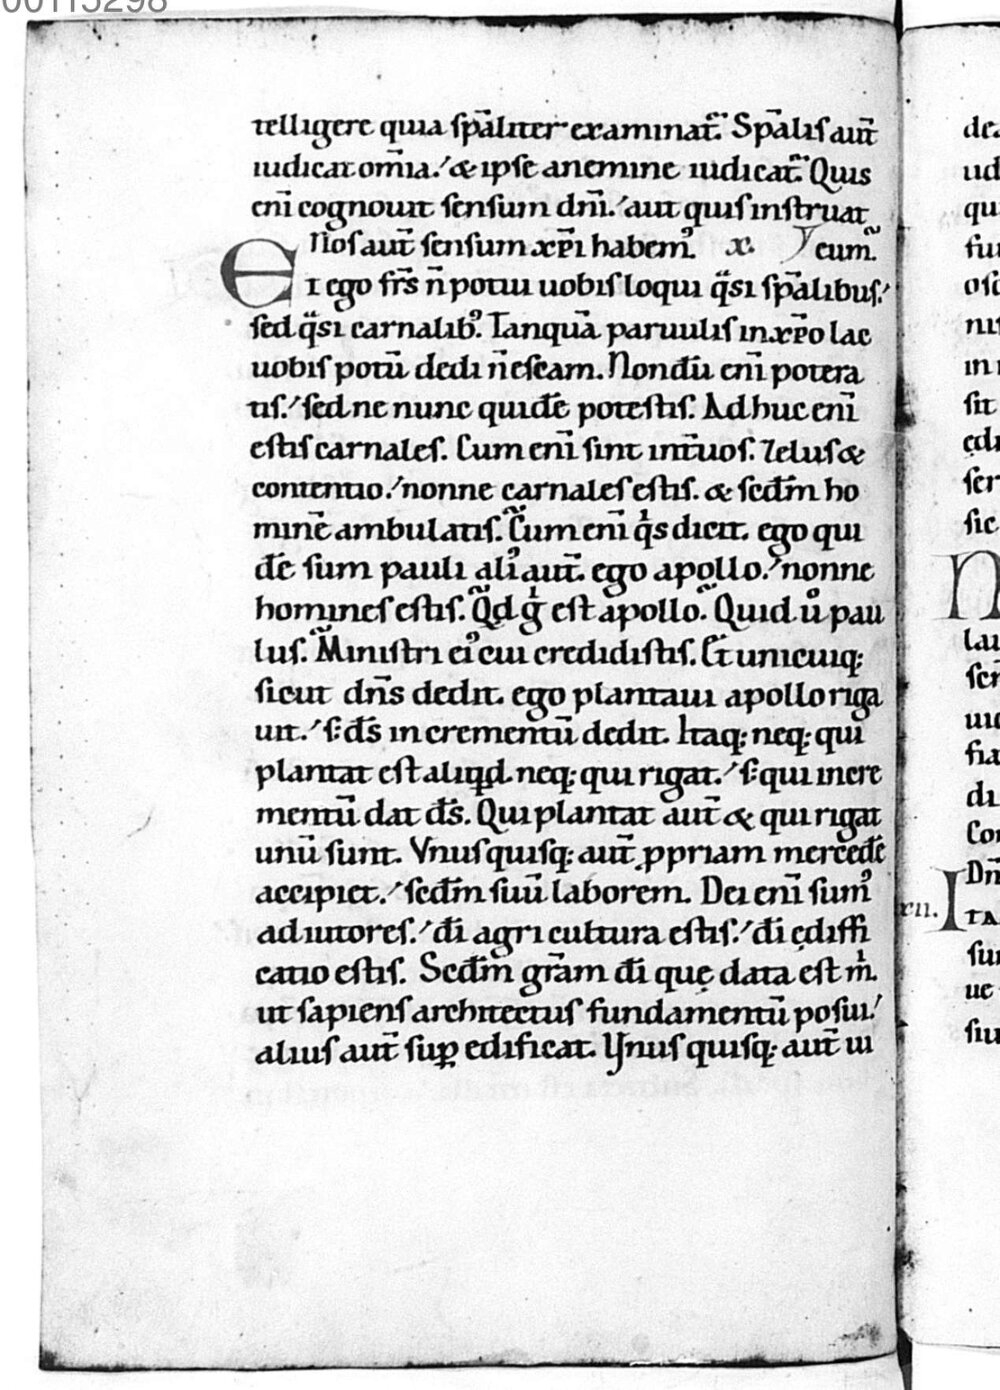 00115298
telligere quia sp̄aliter examinat̄. Sp̄alis aut̄
iudicat om̄ia. & ipse anemine iudicat̄. Quis
eni̅ cognouit sensum dn̄i. aut quis instruat
Nos aut̄ sensum xp̄i habemꝰ. x. eum.
Et ego fr̄s n̄ potui uobis loqui q̄si sp̄alibus.
sed q̄si carnalibꝰ. Tanquā paruulis in xp̄o lac
uobis potū dedi n̄ escam. Nondū eni̅ potera
tis. sed ne nunc quidē potestis. Adhuc eni̅
estis carnales. Cum eni̅ sint int̄ uos. Zelus &
contentio. nonne carnales estis. & scd̄m ho
minē ambulatis. Cum eni̅ qͥs dicit. ego qui
dē sum pauli aliꝰ aut̄. ego apollo. nonne
homines estis. Qͥd gͥ est apollo. Quid uͦ pau
lus. Ministri eiꝰ cui credidistis. Et unicuiq;
sicut dn̄s dedit. ego plantaui apollo riga
uit. s; d̄s incrementū dedit. Itaq; neq; qui
plantat est aliqͥd neq; qui rigat. s; qui incre
mentū dat d̄s. Qui plantat aut̄ & qui rigat
unū sunt. Vnusquisq; aut̄ ꝓpriam mercedē
accipiet. scd̄m suū laborem. Dei eni̅ sumꝰ
adiutores. d̄i agri cultura estis. d̄i ędiffi
catio estis. Scd̄m gr̄am d̄i quę data est mͥ.
ut sapiens architectus fundamentū posui.
alius aut̄ suꝑ edificat. Vnus quisq; aut̄ ui
xii.